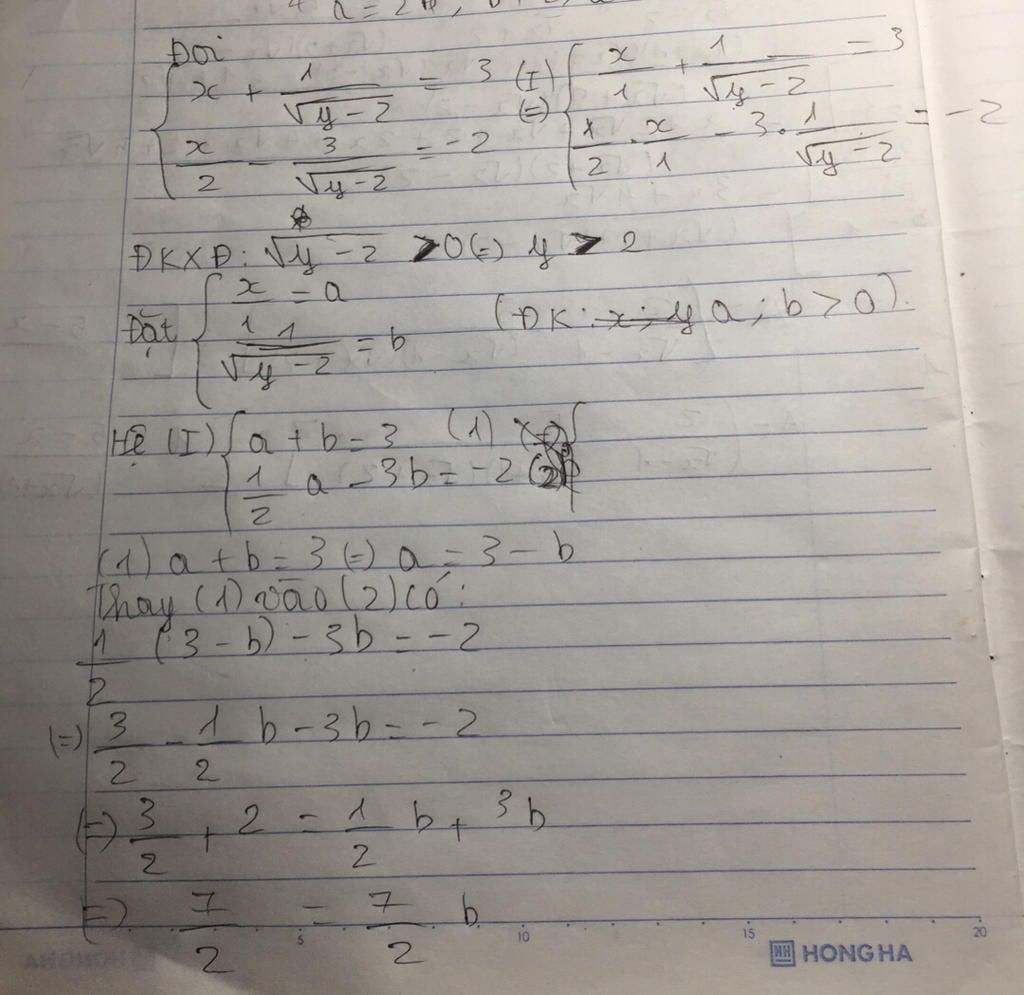 a = 2
Đổi
{ x + 1/√(y-2) = 3 (I) { x/1 + 1/√(y-2) = 3
{ x/2 - 3/√(y-2) = -2 (=) { 1/2 . x/1 - 3 . 1/√(y-2) = -2
ĐKXĐ: √(y-2) > 0 (=) y > 2
Đặt { x/1 = a
{ 1/√(y-2) = b (ĐK: x; y a; b > 0).
Hệ (I) { a + b = 3 (1)
{ 1/2 a - 3b = -2 (2)
(1) a + b = 3 (=) a = 3 - b
Thay (1) vào (2) có:
1/2 (3 - b) - 3b = -2
(=) 3/2 - 1/2 b - 3b = -2
(=) 3/2 + 2 = 1/2 b + 3b
(=) 7/2 = 7/2 b
5 10 15 20
HH HONG HA